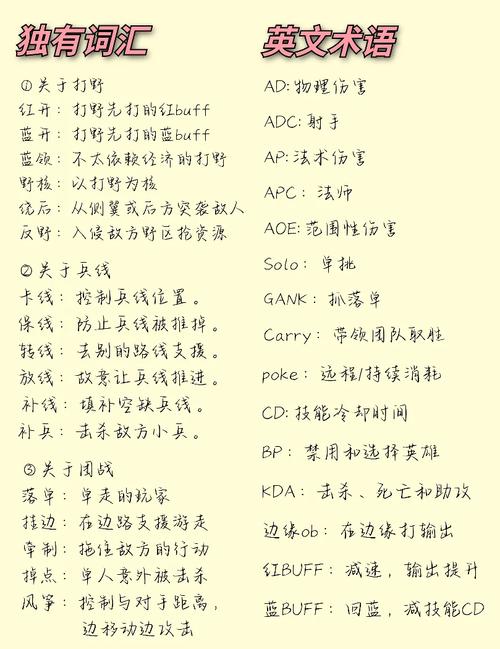 独有词汇
①关于打野
红开：打野先打的红buff
蓝开：打野先打的蓝buff
蓝领：不太依赖经济的打野
野核：以打野为核
绕后：从侧翼或后方突袭敌人
反野：入侵敌方野区抢资源
②关于兵线
卡线：控制兵线位置。
保线：防止兵线被推掉。
转线：去别的路线支援。
放线：故意让兵线推进。
补线：填补空缺兵线。
补兵：击杀敌方小兵。
③关于团战
落单：单走的玩家
挂边：在边路支援游走
牵制：拖住敌方的行动
掉点：单人意外被击杀
风筝：控制与对手距离，
边移动边攻击
英文术语
AD:物理伤害
ADC: 射手
AP:法术伤害
APC：法师
AOE:范围性伤害
Solo：单挑
GANK：抓落单
Carry：带领团队取胜
poke：远程/持续消耗
CD:技能冷却时间
BP：禁用和选择英雄
KDA：击杀、死亡和助攻
边缘ob：在边缘打输出
红BUFF：减速，输出提升
蓝BUFF：回蓝，减技能CD